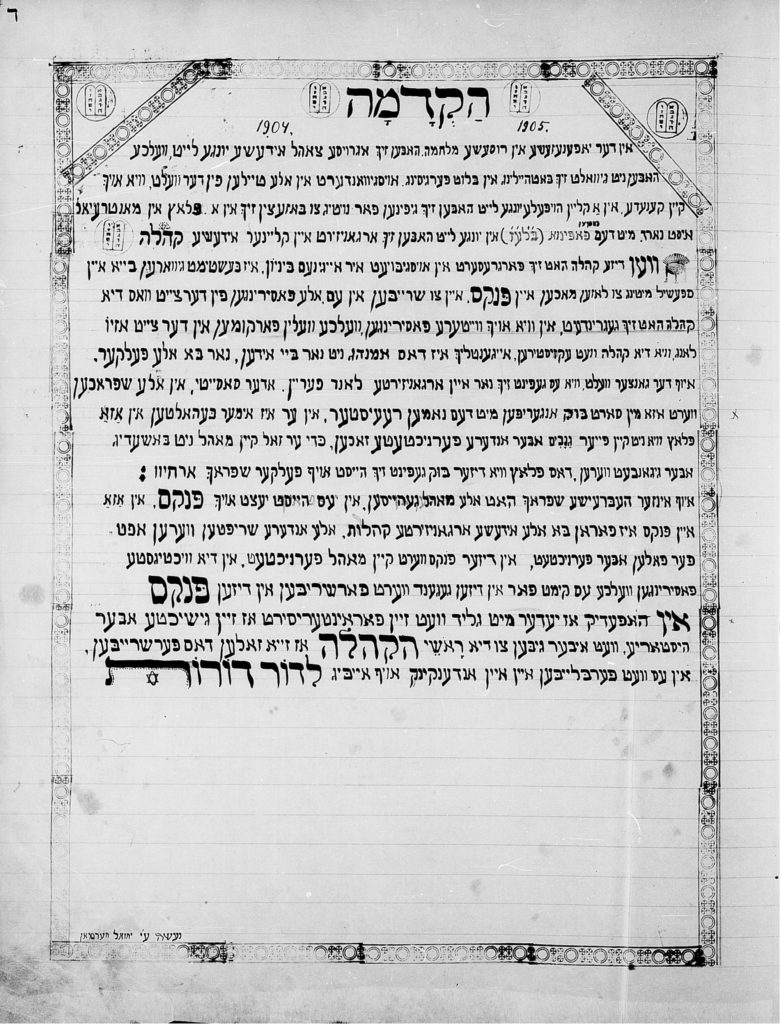 ד
הַקְדָמָה
1904. 1905.
אין דער יאפּענעזעשע אין רוסעשע מלחמה. האבען זיך אגרויסע צאהל אידעשע יונגע לייט, וועלכע
האבען ניט געוואלט זיך באטהיילינג. אין בלוט פערגיסינג. אויסגיוואנדערט אין אלע טיילען פין דער וועלט, וויא אויך
קיין קענעדע, אין אַ קליין הייפעלע יונגע לייט האבען זיך גיפינען פאר נויטיג, צו באזעצין זיך אין א פלאץ אין מאנטרעיאל
איסט נארד. מיט דעם נאמען פּאפּינא (בלעז) אין יונגע לייט האבען זיך ארגאניזירט אין קליינער אידעשע קהלה
ווען דיזע קהלה האט זיך פארגרעסערט אין אויסגיבויעט איר אייגענעם בינין. איז בעשטימט געווארען ביי א איין
ספּעשיל מיטינג צו לאזען מאכען איין פנקס. איין צו שרייבען אין עם, אלע פּאסירינגען פין דערצייט וואס דיא
קהלה האט זיך געגרינדעט, אין וויא אויך ווייטערע פּאסירינגען, וועלכע וועלין פארקומען אין דער צייט אזיו
לאנג, וויא דיא קהלה וועט עקזיסטירען, אייגענטליך איז דאס אמנהג ניט נאר ביי אידען, נאר בא אלע פעלקער.
אויף דער גאנצער וועלט, וויא עס געפינט זיך נאר איין ארגאניזירטע לאנד פעריין. אדער סאסייטי, אין אלע שפּראכען
ווערט אזא מין סארט בוק אנגעריבען מיט דעם נאמען רעעיסטער, אין ער איז אימער בעהאלטען אין אַזאַ
פּלאץ וויא ניט קיין פייער גנבים אבער אנדערע פערניכטעטע זאכען, כדי ער זאל קיין מאהל ניט באשעדיג
אבער גיגאנבעט ווערען, דאס פּלאץ וויא דיזער בוק געפינט זיך הייסט אויף פעלקער שפּראך ארחיוו:
אויף אינזער העברעישע שפּראך האט אלע מאהל געהייסען, אין עס הייסט יעצט אויך פנקס, אין אַזאַ
איין פנקס איז פאראן בא אלע אידעשע ארגאניזירטע קהלות, אלע אנדערע שריפטען ווערען אפט
פער פאלען אבער פערניכטעט, אין דיזער פנקס ווערט קיין מאהל פערניכטעט, אין דיא וויכטיגסטע
פּאסירינגען וועלכע עס קימט פאר אין דיזען געגענד ווערט פארשריבען אין דיזען פנקס
אין האפעדיק אז יעדער מיט גליד וועט זיין פאראינטעריסירט אז זיין גישיכטע אבער
היסטאריע, וועט איבער גיבען צו דיא רָאשֵׁי הקהלה אז זייא זאלען דאס פערשרייבען,
אין עס וועט פערבלייבען איין איין אנדענקינק אויף אייביג לְדוֹר דוֹרוֹת
נעשה ע״י יחזאל